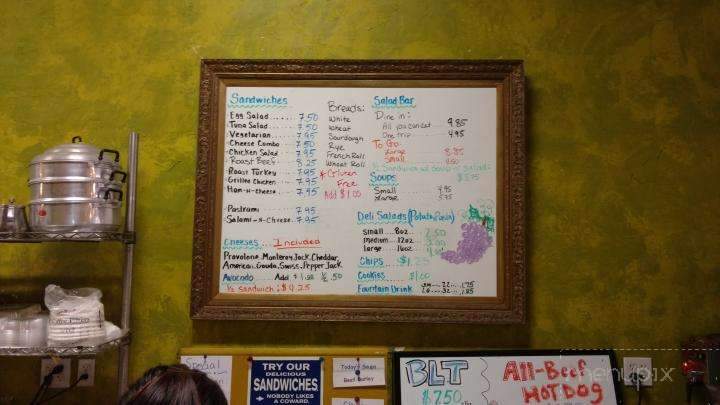 Sandwiches
Egg Salad ..... 7.50
Tuna Salad ..... 7.50
Vegetarian ..... 7.95
Cheese Combo ..... 7.50
Chicken Salad ..... 7.95
Roast Beef ..... 8.25
Roast Turkey ..... 7.95
Grilled Chicken ..... 7.95
Ham-n-cheese ..... 7.95
Pastrami 7.95
Salami-n-Cheese 7.95
Cheeses ... Included
Provolone, Monterey Jack, Cheddar,
American, Gouda, Swiss, Pepper Jack
Avocado Add
½ sandwich: $4.25
Breads:
White
Wheat
Sourdough
Rye
French Roll
Wheat Roll
* Gluten
Free
Add $1.00
Salad Bar
Dine in:
All you can eat 9.85
One trip 4.95
To Go:
Large
Small
½ Sandwich
Soups
Small 4.95
Large 5.75
Deli Salads
small 8oz.
medium 12oz
large 16oz
Chips $1.25
Cookies $1.00
Fountain Drink
Special
TRY OUR
DELICIOUS
SANDWICHES
NOBODY LIKES
A COWARD.
Today's Bean
Beef Barley
BLT
$7.50
All-Beef
HOTDOG
menupix